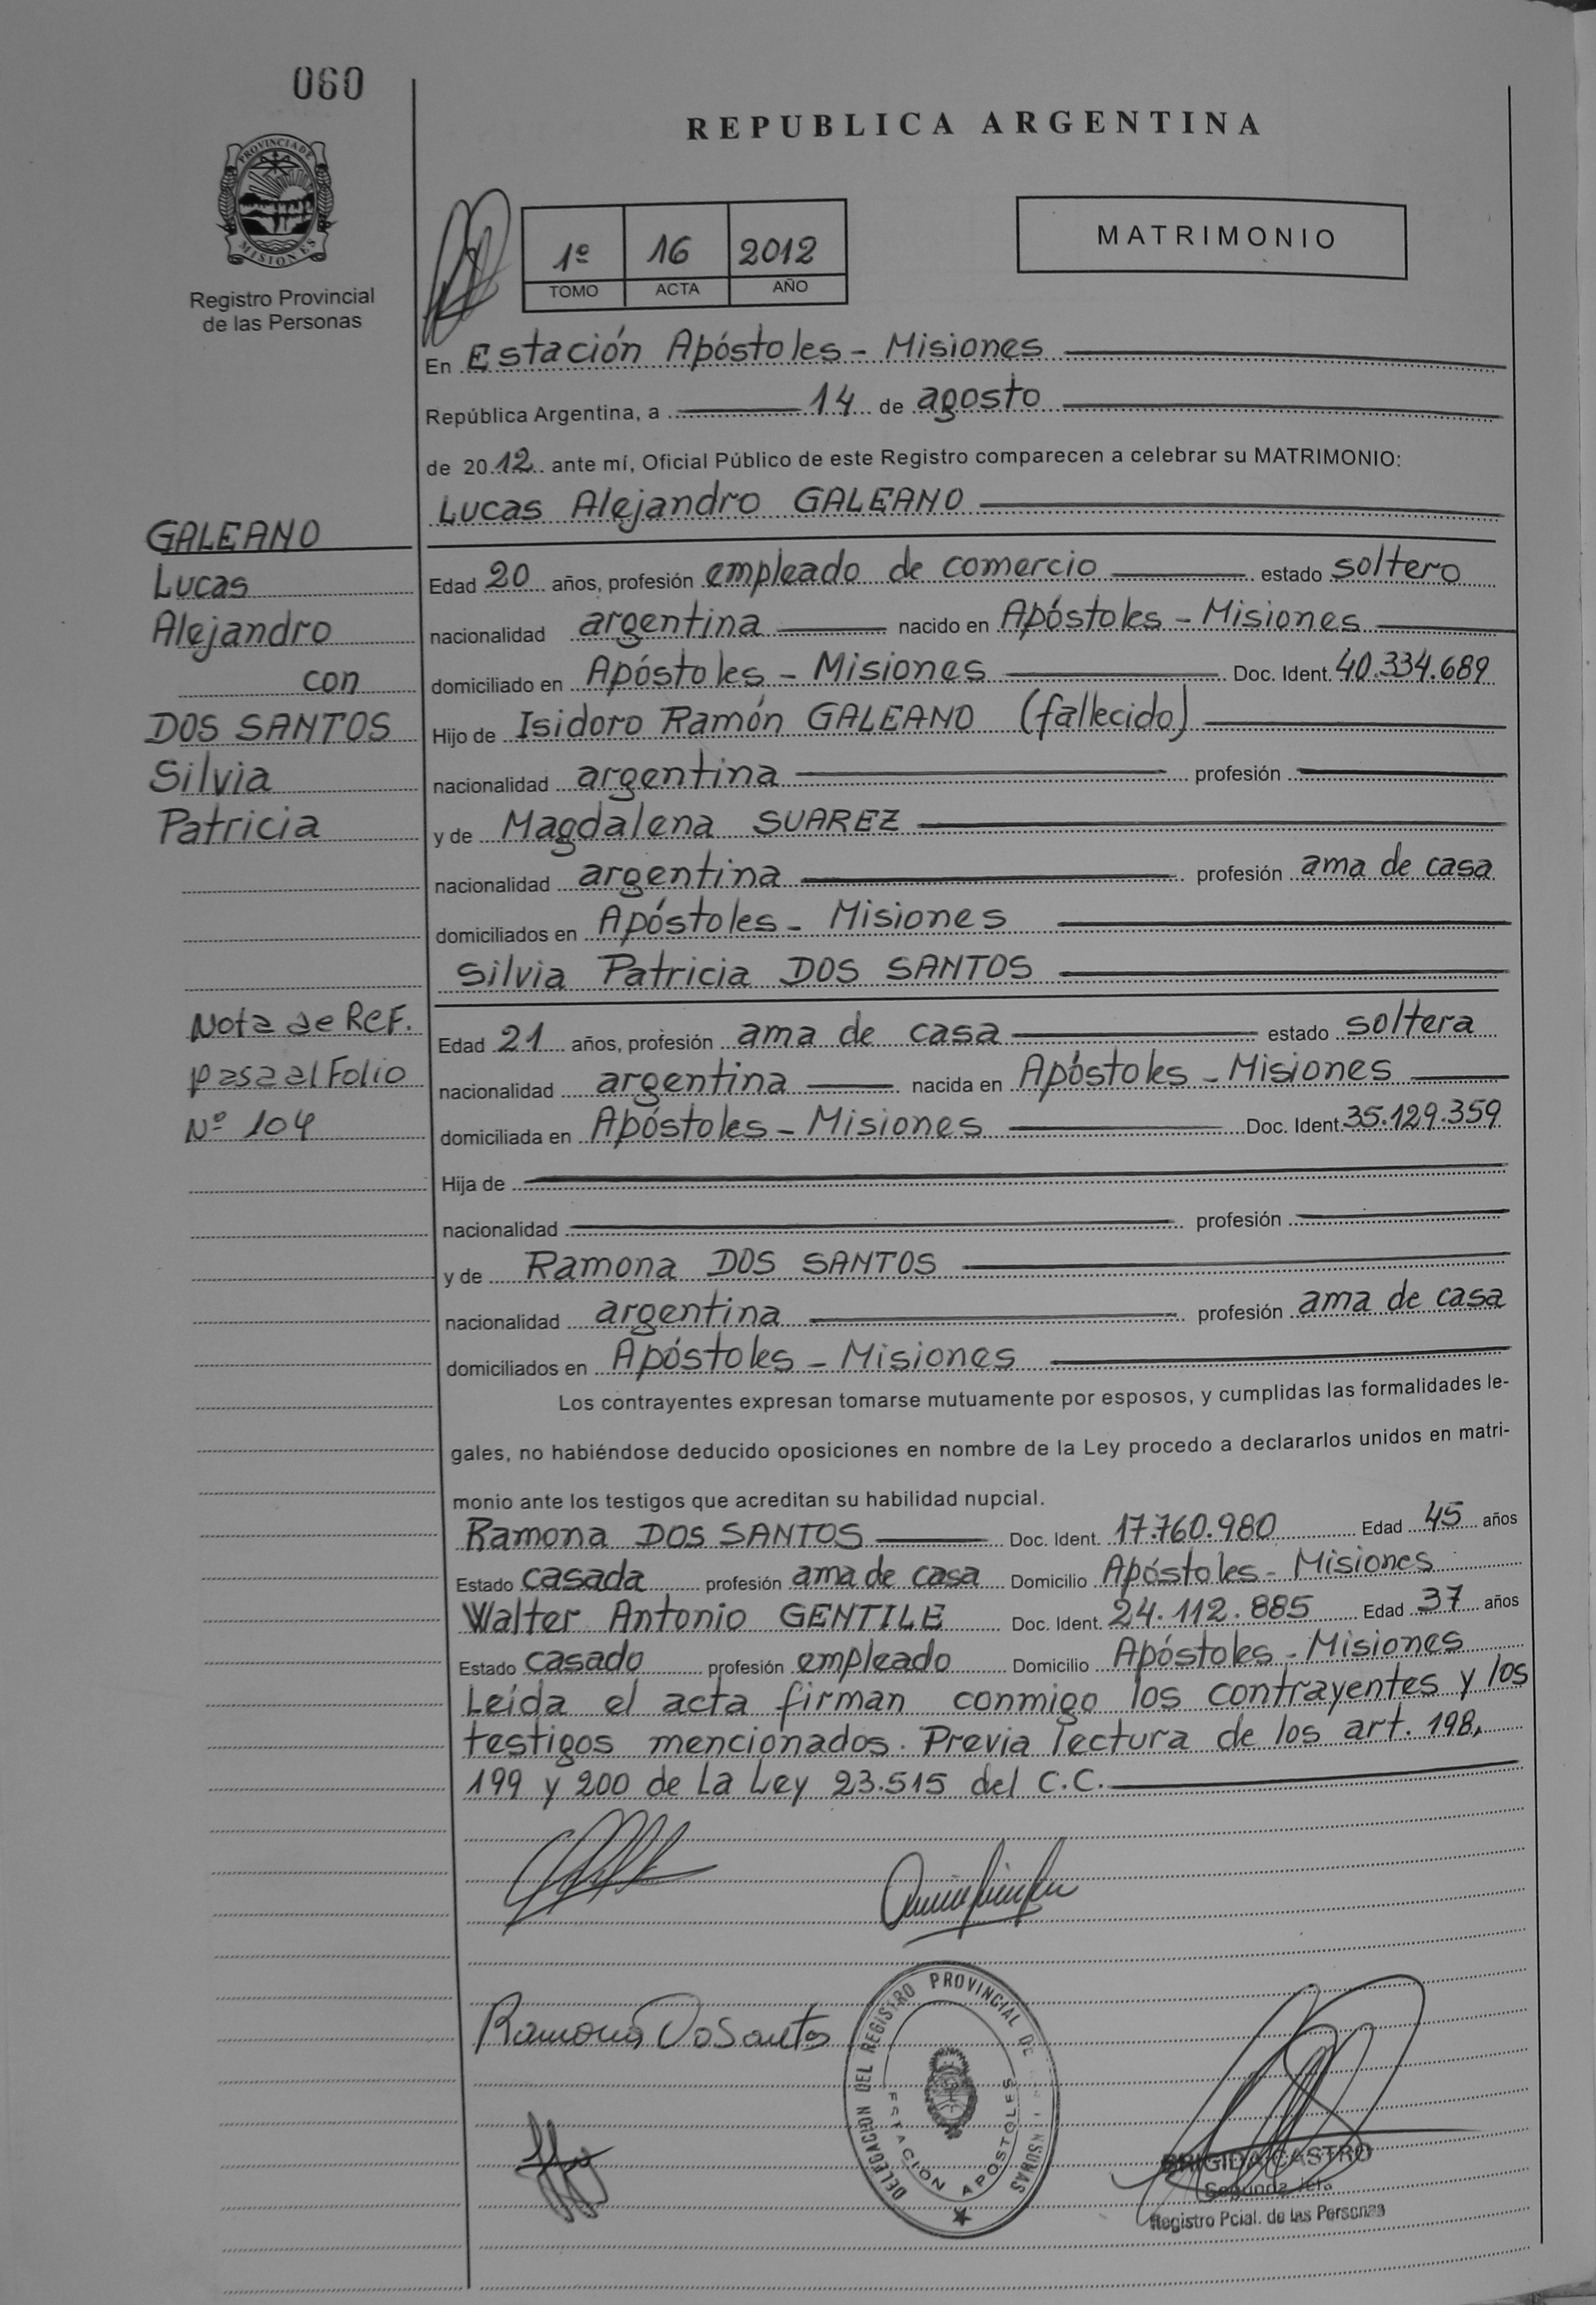 060
REPUBLICA ARGENTINA
PROVINCIA DE
MISIONES
Registro Provincial
de las Personas
1º 16 2012
TOMO ACTA AÑO
MATRIMONIO
En Estación Apóstoles - Misiones
República Argentina, a 14 de agosto
de 2012 ante mí, Oficial Público de este Registro comparecen a celebrar su MATRIMONIO:
Lucas Alejandro GALEANO
GALEANO
Lucas
Alejandro
con
DOS SANTOS
Silvia
Patricia
Edad 20 años, profesión empleado de comercio estado soltero
nacionalidad argentina nacido en Apóstoles - Misiones
domiciliado en Apóstoles - Misiones Doc. Ident. 40.334.689
Hijo de Isidoro Ramón GALEANO (fallecido)
nacionalidad argentina profesión
y de Magdalena SUAREZ
nacionalidad argentina profesión ama de casa
domiciliados en Apóstoles - Misiones
Silvia Patricia DOS SANTOS
Nota de Ref.
pasa al Folio
Nº 104
Edad 21 años, profesión ama de casa estado soltera
nacionalidad argentina nacida en Apóstoles - Misiones
domiciliada en Apóstoles - Misiones Doc. Ident. 35.129.359
Hija de
nacionalidad profesión
y de Ramona DOS SANTOS
nacionalidad argentina profesión ama de casa
domiciliados en Apóstoles - Misiones
Los contrayentes expresan tomarse mutuamente por esposos, y cumplidas las formalidades le-
gales, no habiéndose deducido oposiciones en nombre de la Ley procedo a declararlos unidos en matri-
monio ante los testigos que acreditan su habilidad nupcial.
Ramona DOS SANTOS Doc. Ident. 17.760.980 Edad 45 años
Estado casada profesión ama de casa Domicilio Apóstoles - Misiones
Walter Antonio GENTILE Doc. Ident. 24.112.885 Edad 37 años
Estado casado profesión empleado Domicilio Apóstoles - Misiones
Leída el acta firman conmigo los contrayentes y los
testigos mencionados. Previa lectura de los art. 198,
199 y 200 de La Ley 23.515 del C.C.
Ramona DoSantos
DELEGACION DEL REGISTRO PROVINCIAL DE
ESTACION APOSTOLES
BRIGIDA CASTRO
Segunda Jefa
Registro Pcial. de las Personas